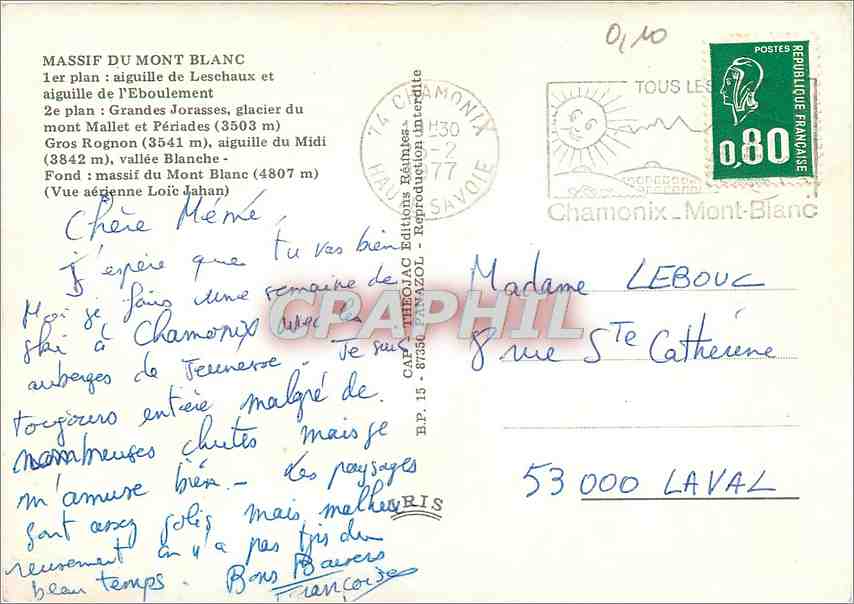 0,10
MASSIF DU MONT BLANC
1er plan : aiguille de Leschaux et
aiguille de l'Eboulement
2e plan : Grandes Jorasses, glacier du
mont Mallet et Périades (3503 m)
Gros Rognon (3541 m), aiguille du Midi
(3842 m), vallée Blanche -
Fond : massif du Mont Blanc (4807 m)
(Vue aérienne Loïc Jahan)
74 CHAMONIX
H30
-2
977
SAVOIE
TOUS LES
Chamonix_Mont-Blanc
POSTES
REPUBLIQUE FRANÇAISE
0,80
CAP-THEOJAC Editions Réunies
B.P. 15 - 87350 PANAZOL - Reproduction interdite
IRIS
Chère Mémé,
J'espère que tu vas bien
Moi je fais une semaine de
ski à Chamonix avec les
auberges de Jeunesse. Je suis
toujours entière malgré de
nombreuses chutes mais je
m'amuse bien. - Les paysages
sont assez jolis mais malheu
reusement on n'a pas très du
beau temps. Bons Baisers
Françoise
Madame LEBOUC
8 rue Ste Catherine
53000 LAVAL
CPARAPHIL